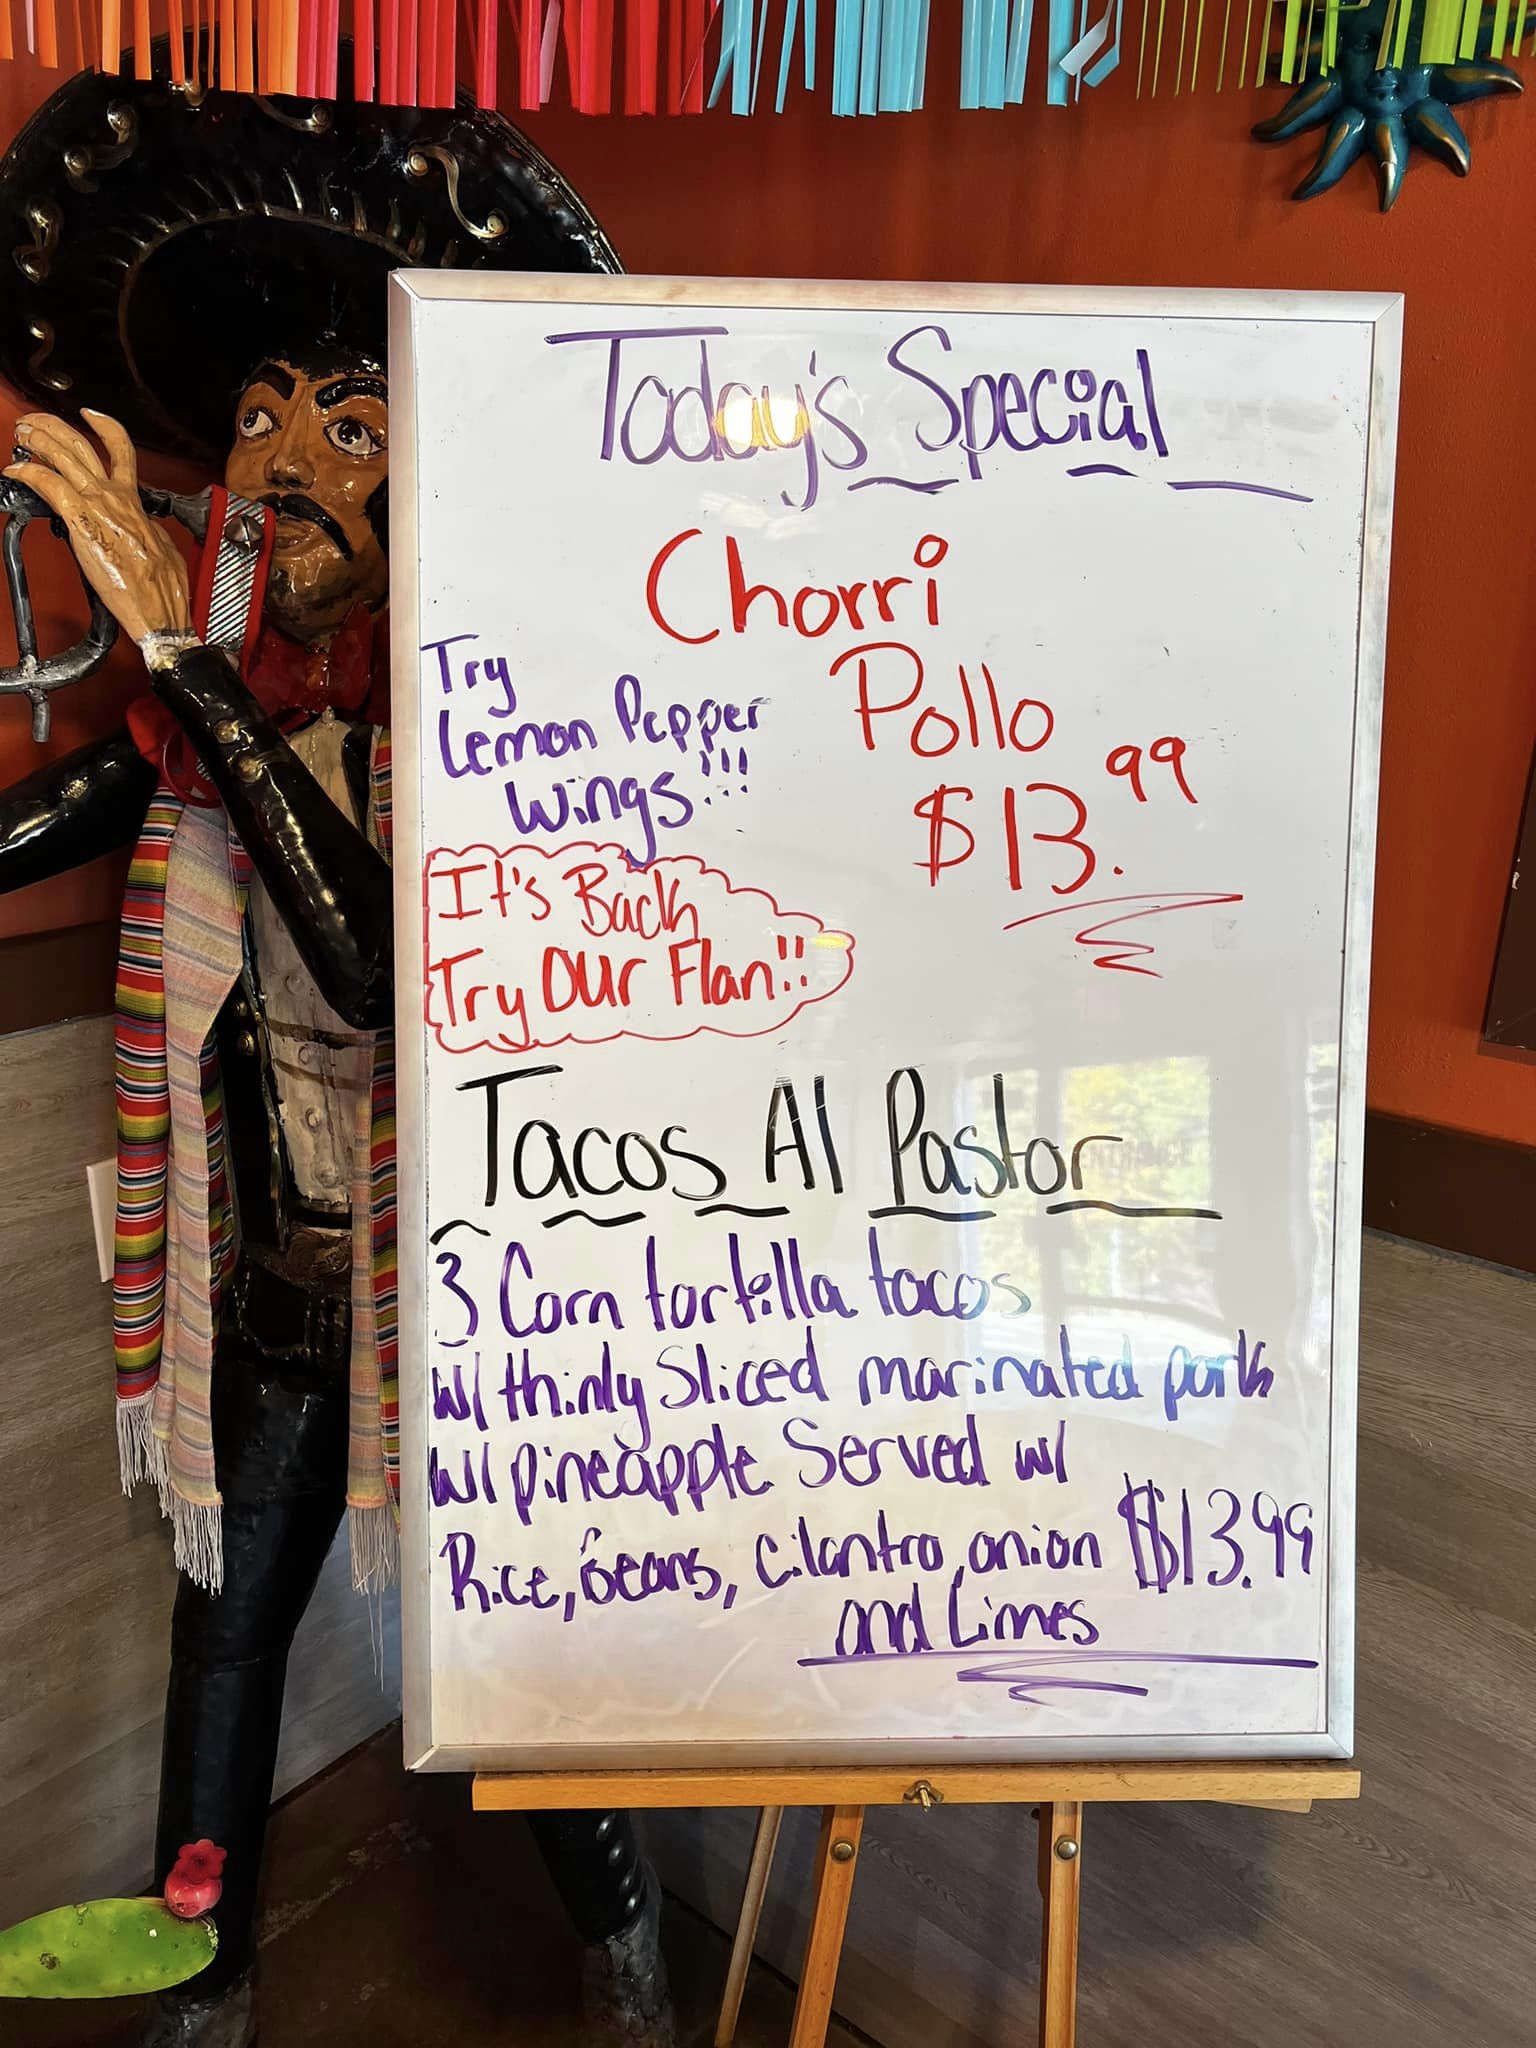 Today's Special
Chorri
Pollo
$13.99
Try
Lemon Pepper
Wings!!!
It's Back
Try Our Flan!!
Tacos Al Pastor
3 Corn tortilla tacos
w/ thinly Sliced marinated pork
w/ pineapple Served w/
Rice, Beans, Cilantro, onion $13.99
and Limes